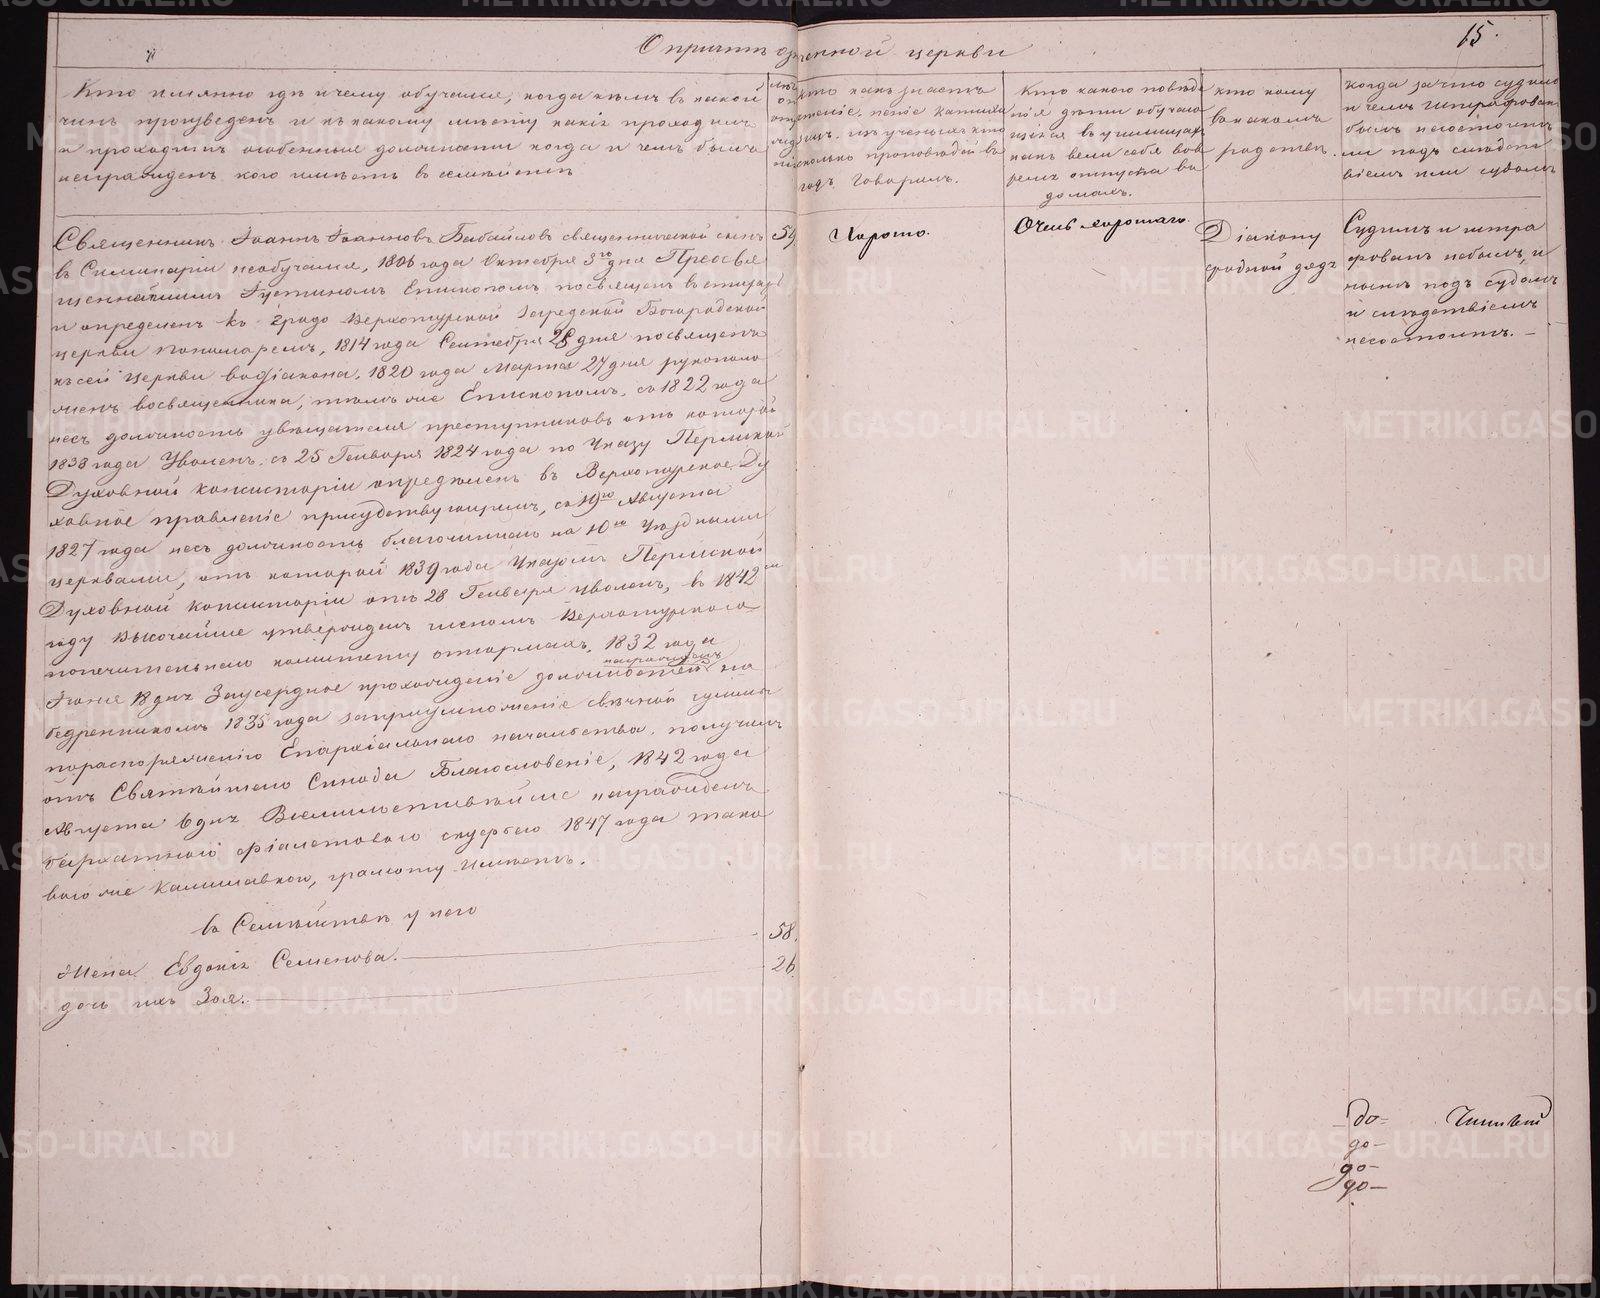 15.
О причтѣ означенной церкви
Кто имянно гдѣ и чему обучался, когда кѣмъ въ какой
чинъ произведенъ и къ какому мѣсту какія проходилъ
и проходитъ особенныя должности когда и чемъ былъ
награжденъ, кого имѣетъ въ семействѣ
Кто какъ знаетъ
чтеніе, пеніе катихи
зисъ. изъ ученыхъ кто
сколько проповѣдей въ
годъ говорилъ.
Кто какого повѣде
нія дѣти обучаю
щіяся въ училищахъ
какъ вели себя вов
ремя отпуска въ
домахъ.
кто кому
въ какомъ
родствѣ.
Когда за что судимъ
и чемъ штрафован
былъ несостоитъ
ли подъ слѣдст
віемъ или судомъ
Священникъ Іоаннъ Іоанновъ Бабайловъ священнической сынъ 59
въ Семинаріи необучался, 1806 года Октября 3го дня Преосвя
щеннѣйшимъ Іустиномъ Епископомъ посвященъ въ стихарь
и определенъ къ Градо Верхотурской Загредской Богородской
церкви пономаремъ, 1814 года Сентября 28 дня посвященъ
къ сей церкви во діакона, 1820 года Марта 27 дня рукополо
женъ восвященника, тѣмъ же Епископомъ, съ 1822 года
несъ должность увѣщателя преступниковъ отъ которой
1838 года Уволенъ. съ 25 Генваря 1824 года по Указу Пермской
Духовной консисторіи определенъ въ Верхотурское Ду
ховное правленіе присудствующимъ, съ 19го Августа
1827 года несъ должность благочиннаго на 10ю Уѣздными
церквами, отъ которой 1839 года Указомъ Пермской
Духовной Консисторіи отъ 28 Генваря уволенъ, въ 1842м
году Высочайше утвержденъ членомъ Верхотурскаго
попечительнаго комитету о тюрмахъ, 1832 года
Іюня 18 дня Заусердное прохожденіе должностей награжденъ на
бедренникомъ 1835 года заприумноженіе свѣчной суммы
пораспоряженію Епархіальнаго начальства. получилъ
отъ Святѣйшаго Синода Благословеніе, 1842 года
Августа 6 дня Всемилостивѣйше награжденъ
бархатною фіалетовою скуфьею 1847 года тако
вою же Камилавкою, грамоту Имѣетъ.
въ Семействѣ у него
Жена Евдокія Семенова. 58.
дочь ихъ Зоя. 26
Хорошо.
Очень хорошаго.
Діакону
сродной дядя
Судимъ и штра
фованъ небылъ, и
нынѣ подъ судомъ
и слѣдствіемъ
несостоитъ.
до-
до-
до-
до-